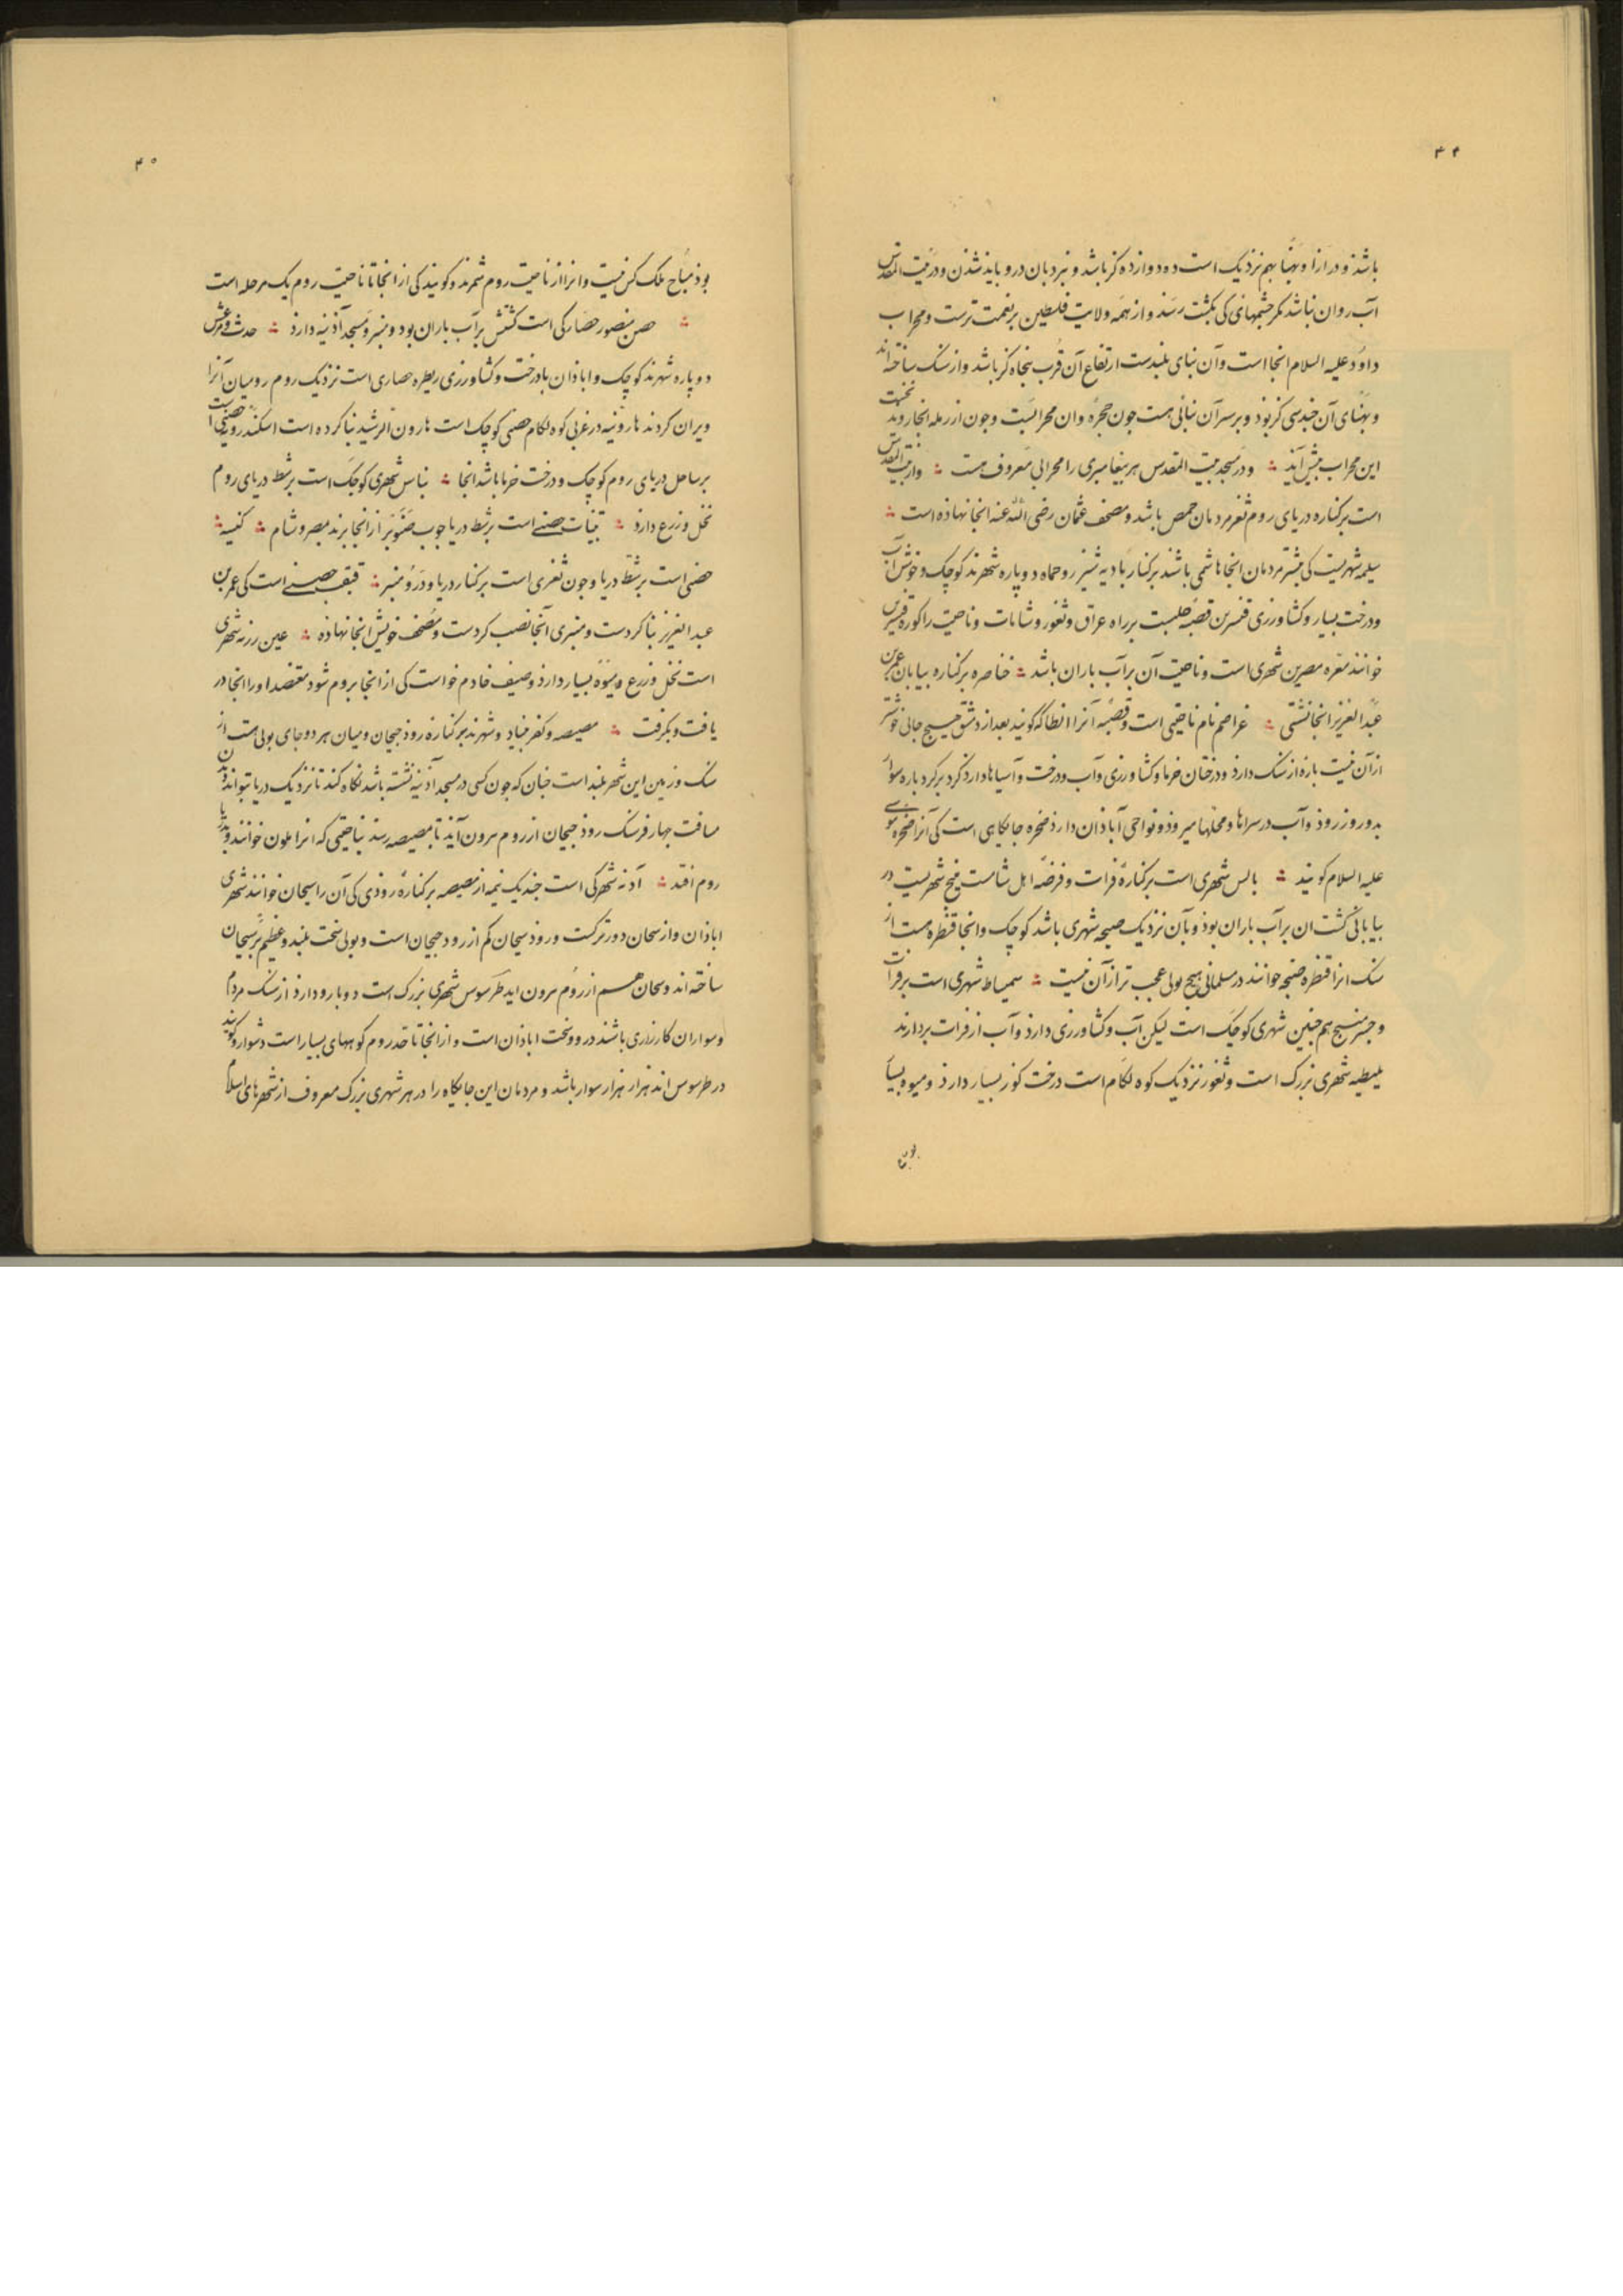 ۴۴
باشذ و درازا و پهنا بهم نزدیک است ده دوازده کز باشد و بنردبان درو بایذ شذن و در بیت المقدس
آب روان نباشد مکر چشمهائی کی بکشت رسَذ و از همَه ولایت فلسطین بر نعمت ترست و محراب
داوٗد علیه السلام انجا است و آن بنای بلندست ارتفاع آن قُرب پنجاه کز باشد و از سنک ساخته‌اند
و پهنای آن سی کز بوَذ و بر سر آن بنائی هست جون حجرهٔ و ان محرابست و جون از رمله انجا روند نخست
این محراب پیش آیذ ؞ و در مَسجد بیت المقدس هر پیغامبری را محرابی مَعروف هست ؞
است بر کناره دریای روم ثغر مردمان حمص باشد و مصحف عثمان رضی الله عنه انجا نهاذه است ؞
سلمیه شهریست کی بیشتر مردمان انجا هاشمی باشند بر کنار بادیه شیزر و حماه دو پاره شهرند کوچک و خوش آب
و درخت بسیار و کشاورزی قنسرین قصبه حلبست بر راه عراق و ثغور و شامات و ناحیت را کوره قنسرین
خوانند معره مصرین شهری است و ناحیت آن بر آب باران باشد ؞ خناصره بر کناره بیابان عمر بن
عبد العزیز انجا نشستی ؞ عواصم نام ناحیتی است و قصبَه آنرا انطاکه کویند بعد از دمشق هیچ جائی خوشتر
از آن نیست باره از سنک دارذ و درختان خرما و کشاورزی و آب و درخت و آسیاها دارد کرد بر کرد باره سوار
بدو روز رود و آب در سراها و محلّها میرود و نواحی آباذان دارذ صخره جایکاهی است کی آنرا صخره موسی
علیه السلام کویند ؞ بالس شهری است بر کنارهٔ فرات و فرضَه اهل شامست منبج شهریست در
بیابانی کشت ان بر آب باران بوذ و بآن نزدیک صنجه شهری باشد کوچک و انجا قنطره هست از
سنک انرا قنطره صنجه خوانند در مسلمانی هیچ پولی عجب تر از آن نیست ؞ سمیساط شهری است بر فرات
و جسر منبج هم چنین شهری کوچک است لیکن آب و کشاورزی دارذ و آب از فرات بردارند
ملیطه شهری بزرک است و ثغور نزدیک کوه لکام است درخت کوز بسیار دارد و میوه بسیا
بوذ
۴۵
بوذ مُباح ملک کس نیست و انرا از ناحیت روم شمرند و کویند کی از انجا تا ناحیت روم یک مرحله است
؞ حصن منصور حصَارکی است کشتش بر آب باران بود و منبر و مَسجد آذینه دارذ ؞ حدث و مرعش
دو پاره شهرند کوچک و اباذان بادرخت و کشاورزی زبطره حصاری است نزدیک روم رومیان آنرا
ویران کردند هارونیه در غربی کوه لکام حصنی کوچک است هارون الرشید بنا کرده است اسکندرونه حصنی است
بر ساحل دریای روم کوچک و درخت خرما باشد انجا ؞ بیاس شهری کوچک است بر شط دریای روم
نخل و زرع دارذ ؞ تینات حصنی است بر شط دریا چوب صَنوبر از انجا برند بمصر و شام ؞ کنیسه ؞
حصنی است بر شَط دریا و جون ثغری است بر کنار دریا و در وُ منبر ؞ مثقب حصنی است کی عمر بن
عبد العزیز بنا کردست و منبری آنجا نصب کردست و مُصحف خویش انجا نهاذه ؞ عین زربه شهری
است نخل و زرع و میوه بسیار دارذ وصیف خادم خواست کی از انجا بروم شود معتضد او را انجا در
یافت و بکرفت ؞ مصیصه و کفربیا دو شهرند بر کناره روذ جیحان و میان هر دو جای پولی هست از
سنک و زمین این شهر بلند است چنان که جون کسی در مسجد آذینه نشسته باشد نکاه کند تا نزدیک دریا بتواند دیدن
مسافت چهار فرسنک روذ جیحان از روم بیرون آیذ تا بمصیصه رسذ بناحیتی که انرا ملون خوانند و بدریا
روم افتد ؞ آدنه شهرکی است چند یک نیمه از مصیصه بر کنارهٔ روذی کی آن را سیحان خوانند شهری
اباذان و از سیحان دورترکست و روذ سیحان کم از رود جیحان است و پولی سخت بلند و عظیم بر سیحان
ساخته اند و سیحان هم از روم بیرون اید طرسوس شهری بزرک است دو بارو دارذ از سنک مردم
و سواران کارزاری باشند درو و سخت اباذان است و از انجا تا حد روم کوههای بسیار است دشوار و کویند
در طرسوس اند هزار هزار سوار باشد و مردمان این جایکاه را در هر شهری بزرک معروف از شهرهای اسلام